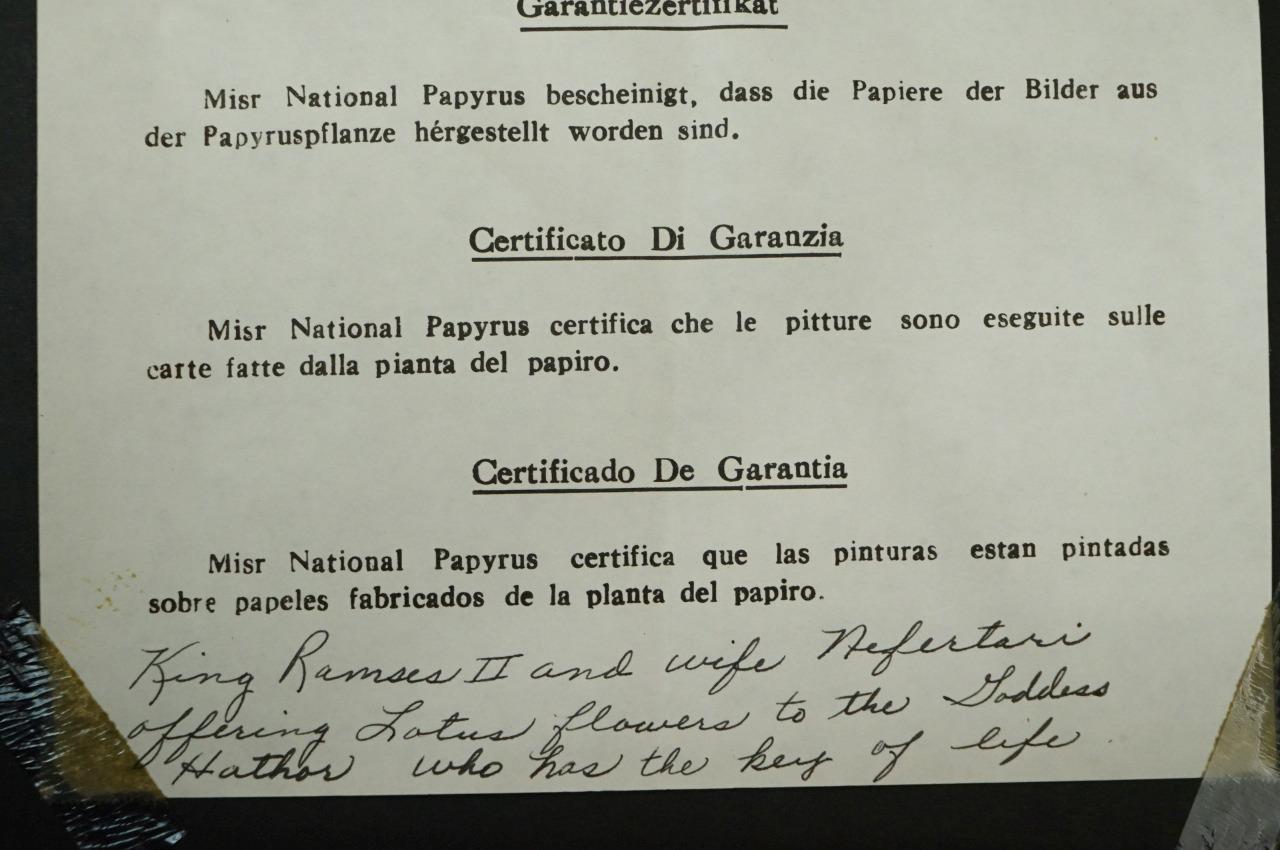 Garantiezertifikat
Misr National Papyrus bescheinigt, dass die Papiere der Bilder aus
der Papyruspflanze hérgestellt worden sind.
Certificato Di Garanzia
Misr National Papyrus certifica che le pitture sono eseguite sulle
carte fatte dalla pianta del papiro.
Certificado De Garantia
Misr National Papyrus certifica que las pinturas estan pintadas
sobre papeles fabricados de la planta del papiro.
King Ramses II and wife Nefertari
offering Lotus flowers to the Goddess
Hathor who has the key of life.